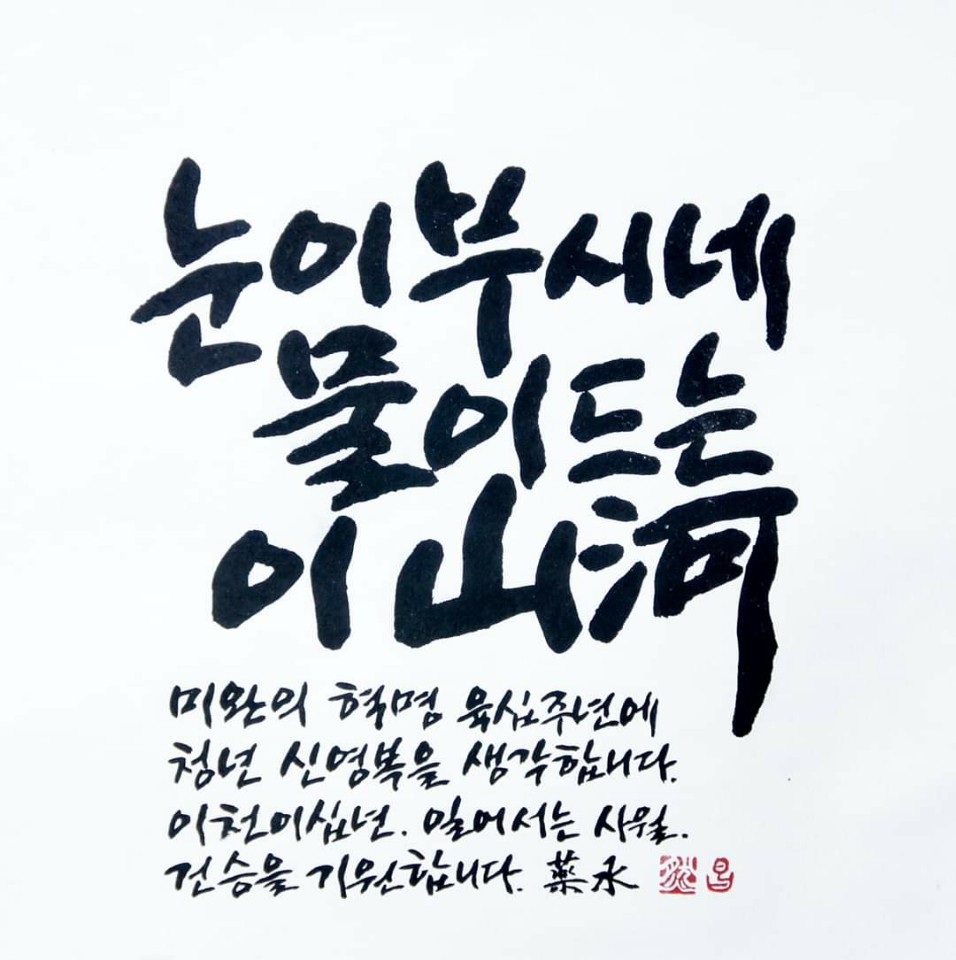 눈이부시네
물이드는
이 山河
미완의 혁명 육십주년에
청년 신영복을 생각합니다.
이천이십년. 일어서는 사월.
건승을 기원합니다. 藥水